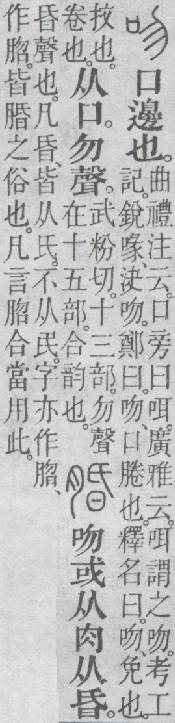 吻口邊也。曲禮注云。口旁曰咡。廣雅云。咡謂之吻。考工
記。銳喙決吻。鄭曰。吻、口腃也。釋名曰。吻、免也。
抆也。
卷也。从口。勿聲。武粉切。十三部。勿聲
在十五部。合韵也。𦝮吻或从肉从昏。
昏聲也。凡昏、皆从氏。不从民。字亦作脗、
作脗。皆𦝮之俗也。凡言脗合當用此。